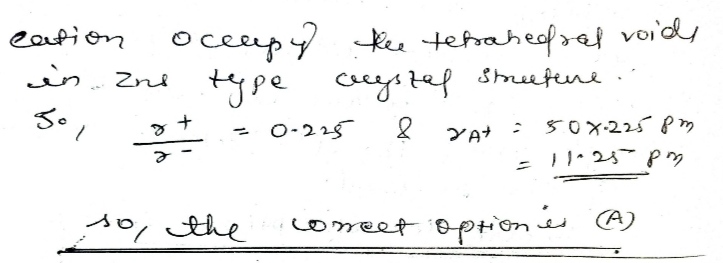 cation occupy the tetrahedral voids
in ZnS type crystal structure.
So, r+/r- = 0.225 & rA+ = 50x.225 pm
= 11.25 pm
so, the correct option is (A)